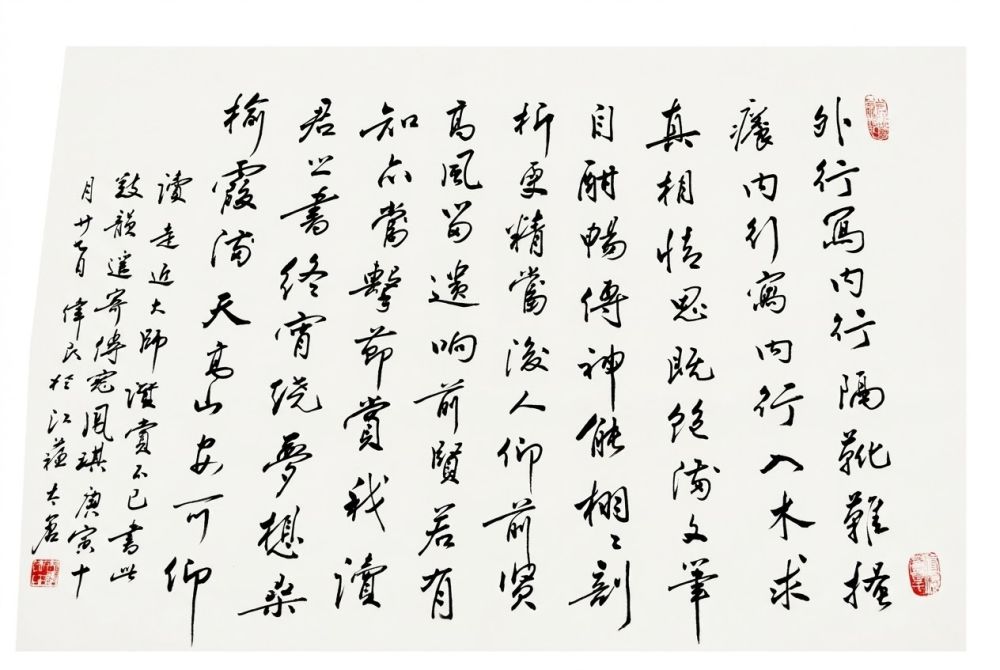 外行寫内行隔靴難搔
癢内行寫内行入木求
真相情思既飽滿文筆
自酣暢傳神能栩〻剖
析更精當後人仰前贤
高風留遺响前賢若有
知亦當擊節賞我讀
君書終宵繞夢想桑
榆霞滿天高山安可仰
讀走近大師讚賞不已書此
數韻遥寄庚寅十
月廿偉民於江蘇太倉